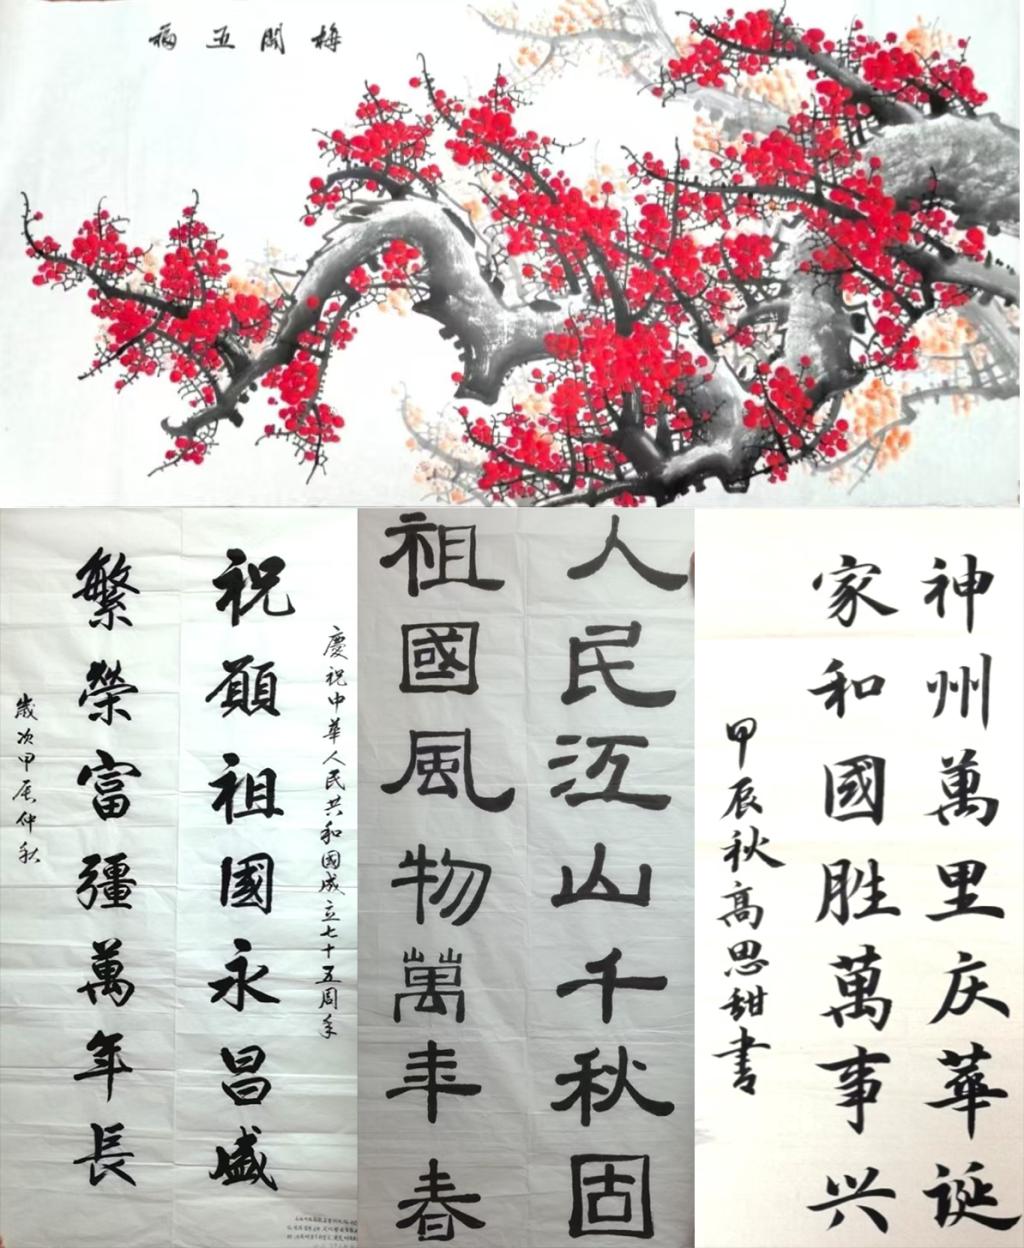 梅開五福
慶祝中華人民共和國成立七十五周年
祝願祖國永昌盛
繁榮富疆萬年長
歲次甲辰仲秋
人民江山千秋固
祖國風物萬年春
神州萬里庆華诞
家和國胜萬事兴
甲辰秋高思甜書